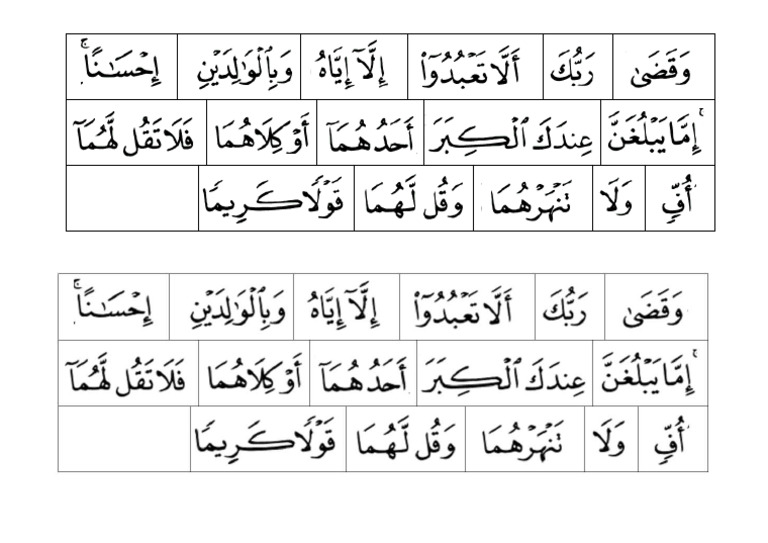 وَقَضَىٰ رَبُّكَ أَلَّا تَعْبُدُوٓا۟ إِلَّآ إِيَّاهُ وَبِٱلْوَٰلِدَيْنِ إِحْسَـٰنًا ۚ
إِمَّا يَبْلُغَنَّ عِندَكَ ٱلْكِبَرَ أَحَدُهُمَآ أَوْ كِلَاهُمَا فَلَا تَقُل لَّهُمَآ
أُفٍّ وَلَا تَنْهَرْهُمَا وَقُل لَّهُمَا قَوْلًا كَرِيمًا
وَقَضَىٰ رَبُّكَ أَلَّا تَعْبُدُوٓا۟ إِلَّآ إِيَّاهُ وَبِٱلْوَٰلِدَيْنِ إِحْسَـٰنًا ۚ
إِمَّا يَبْلُغَنَّ عِندَكَ ٱلْكِبَرَ أَحَدُهُمَآ أَوْ كِلَاهُمَا فَلَا تَقُل لَّهُمَآ
أُفٍّ وَلَا تَنْهَرْهُمَا وَقُل لَّهُمَا قَوْلًا كَرِيمًا